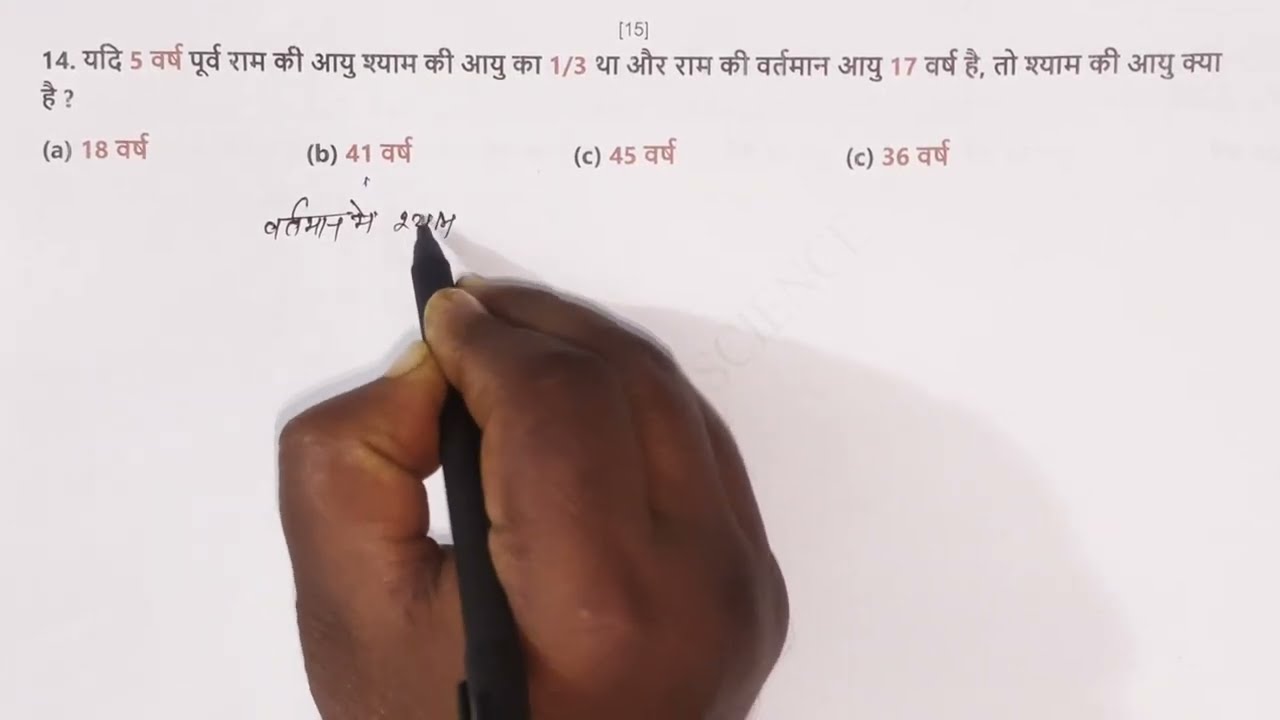 [15]
14. यदि 5 वर्ष पूर्व राम की आयु श्याम की आयु का 1/3 था और राम की वर्तमान आयु 17 वर्ष है, तो श्याम की आयु क्या
है ?
(a) 18 वर्ष (b) 41 वर्ष (c) 45 वर्ष (c) 36 वर्ष
वर्तमान में श्याम
SCIENCE